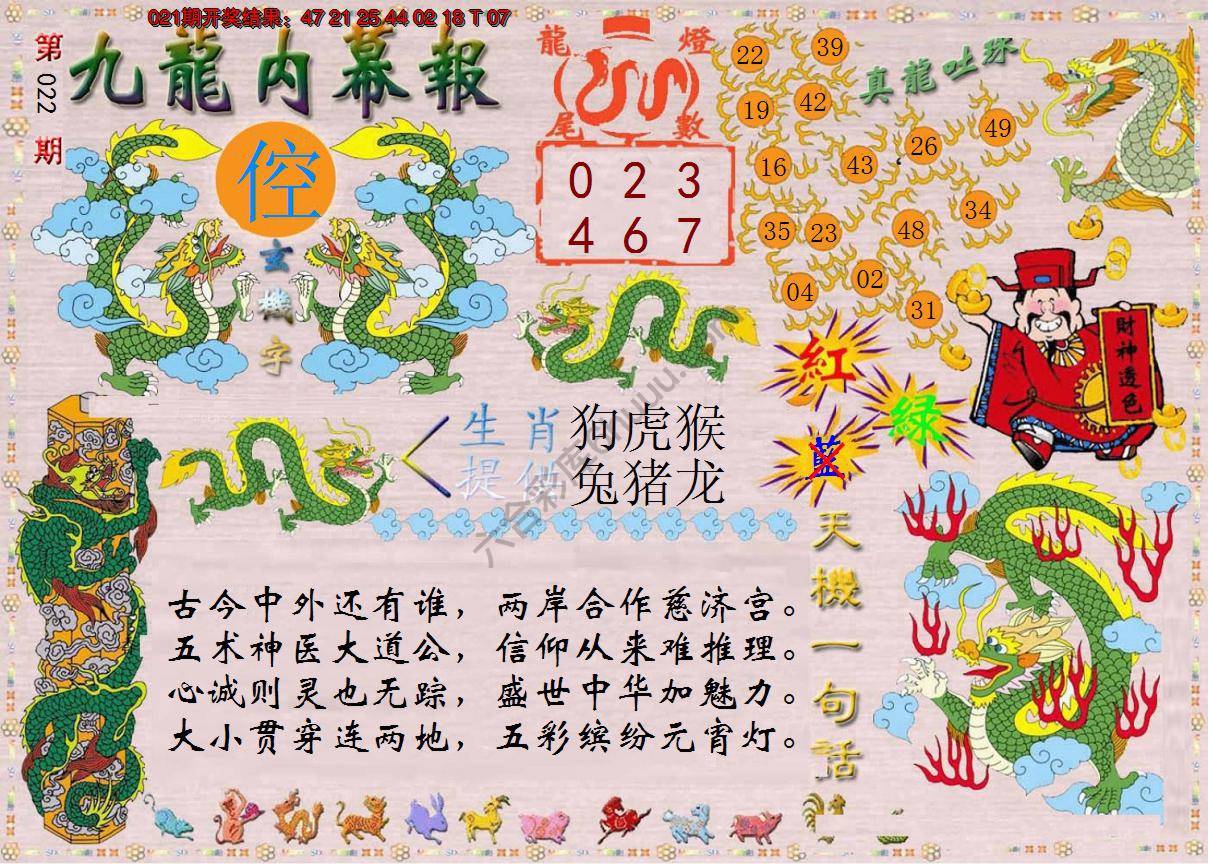 021期开奖结果：47 21 25 44 02 18 T 07
第022期
九龍内幕報
龍燈
尾數
0 2 3
4 6 7
真龍吐珠
22
39
19
42
49
26
16
43
34
35
23
48
02
04
31
倥
玄機字
財神透色
紅
綠
藍
生肖
提供
狗虎猴
兔猪龙
天機一句話
古今中外还有谁，两岸合作慈济宫。
五术神医大道公，信仰从来难推理。
心诚则灵也无踪，盛世中华加魅力。
大小贯穿连两地，五彩缤纷元宵灯。